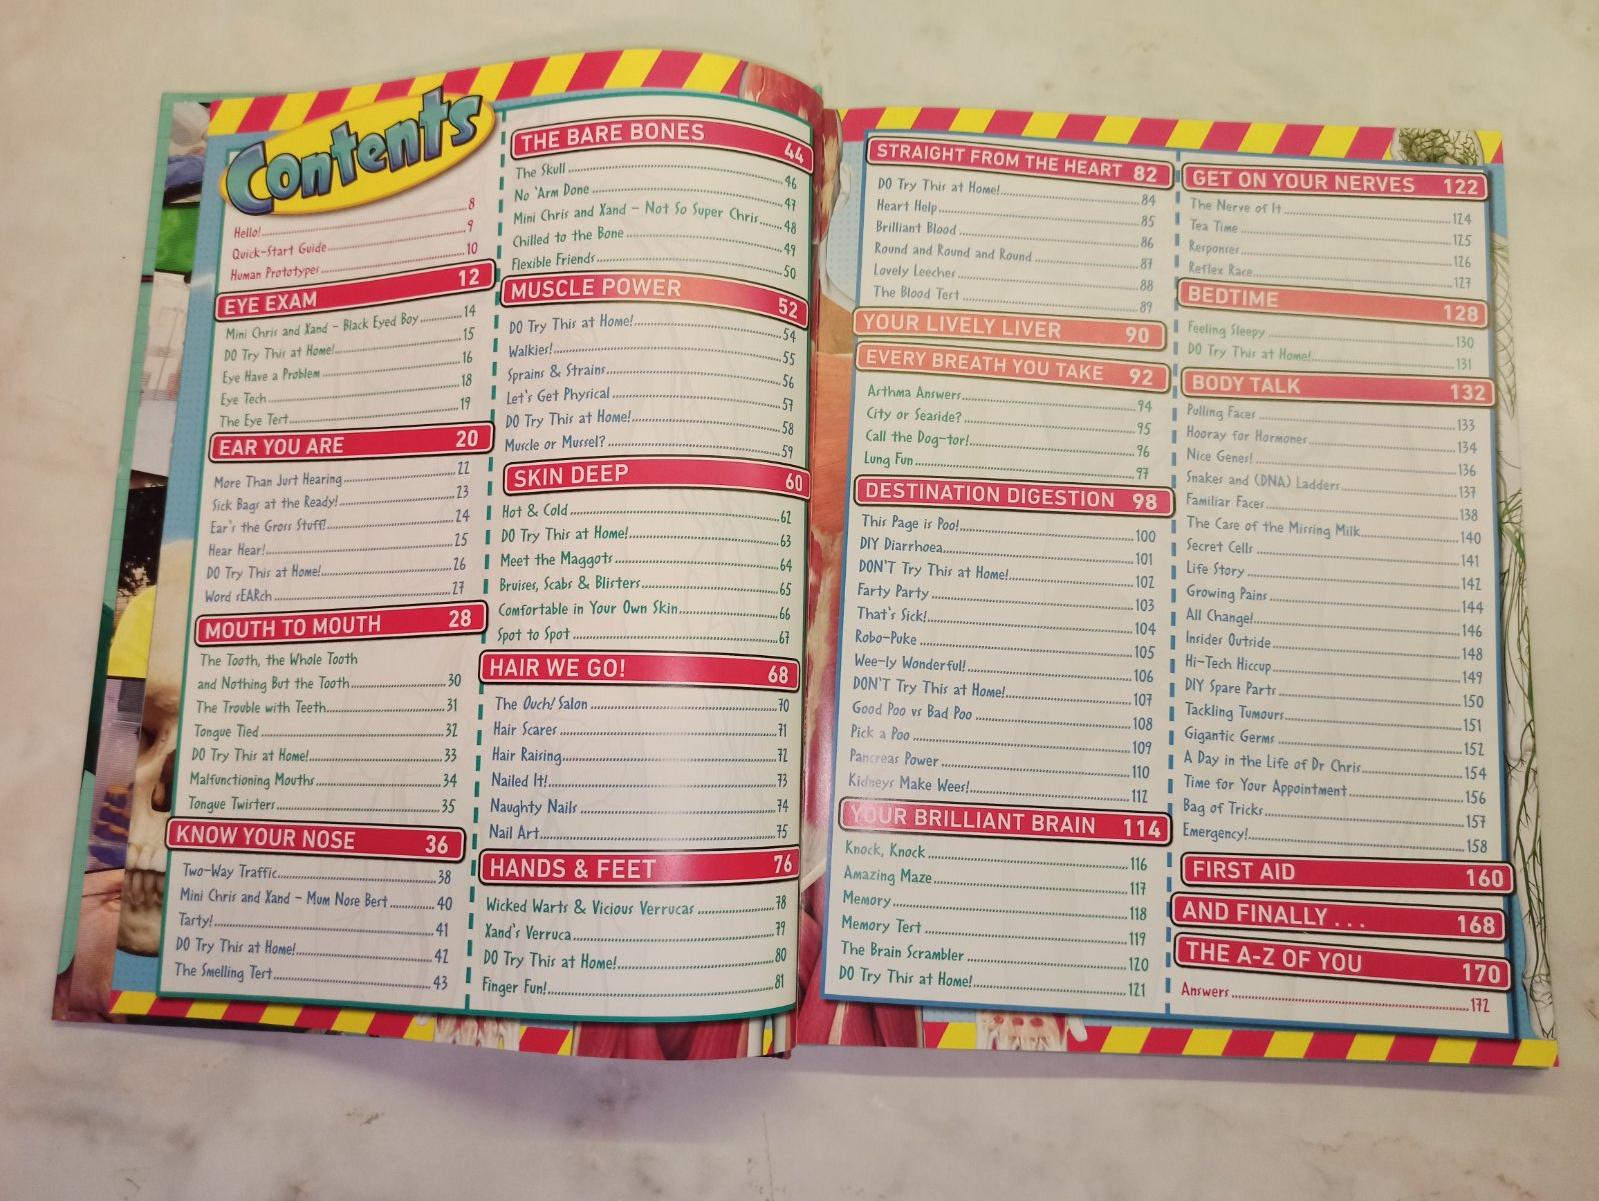 Contents
Hello! 8
Quick-Start Guide 9
Human Prototypes 10
EYE EXAM 12
Mini Chris and Xand – Black Eyed Boy 14
DO Try This at Home! 15
Eye Have a Problem 16
Eye Tech 18
The Eye Test 19
EAR YOU ARE 20
More Than Just Hearing 22
Sick Bags at the Ready! 23
Ear's the Gross Stuff! 24
Hear Hear! 25
DO Try This at Home! 26
Word sEARch 27
MOUTH TO MOUTH 28
The Tooth, the Whole Tooth
and Nothing But the Tooth 30
The Trouble with Teeth 31
Tongue Tied 32
DO Try This at Home! 33
Malfunctioning Mouths 34
Tongue Twisters 35
KNOW YOUR NOSE 36
Two-Way Traffic 38
Mini Chris and Xand – Mum Nose Best 40
Tasty! 41
DO Try This at Home! 42
The Smelling Test 43
THE BARE BONES 44
The Skull 46
No 'Arm Done 47
Mini Chris and Xand – Not So Super Chris 48
Chilled to the Bone 49
Flexible Friends 50
MUSCLE POWER 52
DO Try This at Home! 54
Walkies! 55
Sprains & Strains 56
Let's Get Physical 57
DO Try This at Home! 58
Muscle or Mussel? 59
SKIN DEEP 60
Hot & Cold 62
DO Try This at Home! 63
Meet the Maggots 64
Bruises, Scabs & Blisters 65
Comfortable in Your Own Skin 66
Spot to Spot 67
HAIR WE GO! 68
The Ouch! Salon 70
Hair Scares 71
Hair Raising 72
Nailed It! 73
Naughty Nails 74
Nail Art 75
HANDS & FEET 76
Wicked Warts & Vicious Verrucas 78
Xand's Verruca 79
DO Try This at Home! 80
Finger Fun! 81
STRAIGHT FROM THE HEART 82
DO Try This at Home! 84
Heart Help 85
Brilliant Blood 86
Round and Round and Round 87
Lovely Leeches 88
The Blood Test 89
YOUR LIVELY LIVER 90
EVERY BREATH YOU TAKE 92
Asthma Answers 94
City or Seaside? 95
Call the Dog-tor! 96
Lung Fun 97
DESTINATION DIGESTION 98
This Page is Poo! 100
DIY Diarrhoea 101
DON'T Try This at Home! 102
Farty Party 103
That's Sick! 104
Robo-Puke 105
Wee-ly Wonderful! 106
DON'T Try This at Home! 107
Good Poo vs Bad Poo 108
Pick a Poo 109
Pancreas Power 110
Kidneys Make Wees! 112
YOUR BRILLIANT BRAIN 114
Knock, Knock 116
Amazing Maze 117
Memory 118
Memory Test 119
The Brain Scrambler 120
DO Try This at Home! 121
GET ON YOUR NERVES 122
The Nerve of It 124
Tea Time 125
Responses 126
Reflex Race 127
BEDTIME 128
Feeling Sleepy 130
DO Try This at Home! 131
BODY TALK 132
Pulling Faces 133
Hooray for Hormones 134
Nice Genes! 136
Snakes and (DNA) Ladders 137
Familiar Faces 138
The Case of the Missing Milk 140
Secret Cells 141
Life Story 142
Growing Pains 144
All Change! 146
Insides Outside 148
Hi-Tech Hiccup 149
DIY Spare Parts 150
Tackling Tumours 151
Gigantic Germs 152
A Day in the Life of Dr Chris 154
Time for Your Appointment 156
Bag of Tricks 157
Emergency! 158
FIRST AID 160
AND FINALLY . . . 168
THE A-Z OF YOU 170
Answers 172